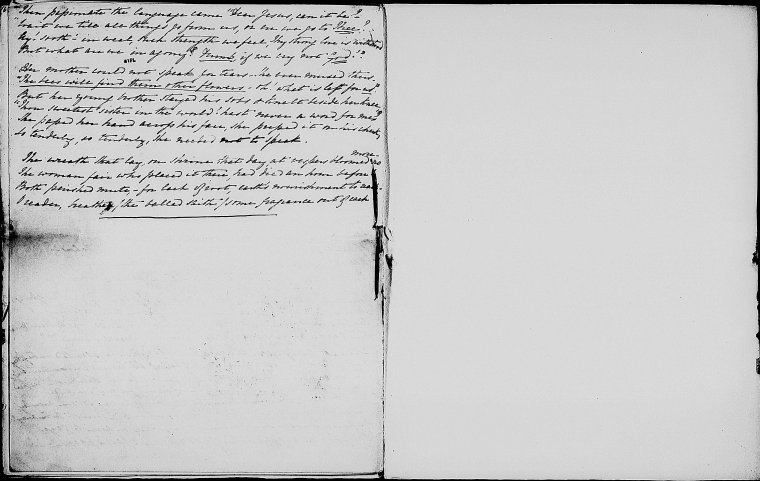 Then passionate the language came "Dear Jesus, can it be?
"Wait we till all things go from us, or ere we go to Thee?
Ay! sooth! in weal, such strength we feel Thy strong love is withstood
But what are we in agony? Dumb, if we cry not 'God'!?
Her mother could not speak for tears - he ever mused thus -
"The bees will find them other flowers - oh! what is left for us?
But her young brother stayed his sobs & knelt beside her knee,
"Thou sweetest sister in the world! hast never a word for me?"
She passed her hand across his face, she pressed it on his cheek,
So tenderly, so tenderly, she needed not to speak.
The wreath that lay, on shrine that day, at vespers bloomed no
more -
The woman fair who placed it there, had died an hour before -
Both perished mute, - for lack of root, earth's nourishment to reach -
O reader, breathe, (the ballad saith) some fragrance out of each